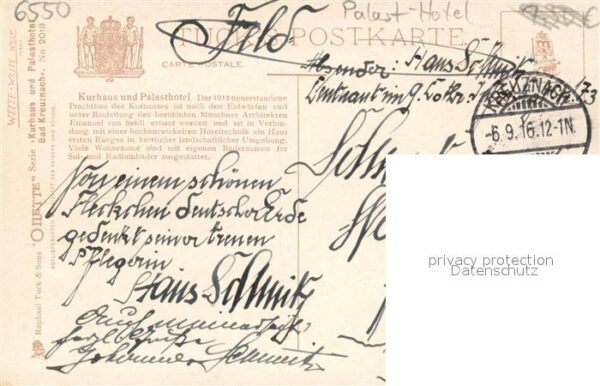 6550
Palast-Hotel
Feld
TUCK'S POSTKARTE
CARTE POSTALE.
Absender: Hans Schmitz
Leutnant in 9. Lothr. 173
KREUZNACH
-6.9.16.12-1N.
Kurhaus und Palasthotel Der 1913 neuerstandene
Prachtbau des Kurhauses ist nach den Entwürfen und
unter Bauleitung des berühmten Münchner Architekten
Emanuel von Seidl erbaut worden und ist in Verbin-
dung mit einer hochentwickelten Hoteltechnik ein Haus
ersten Ranges in herrlicher landschaftlicher Umgebung.
Viele Wohnräume sind mit eigenen Baderäumen für
Sol- und Radiumbäder ausgestattet.
Von einem schönen
Fleckchen deutscher Erde
gedenkt seiner treuen
Pflegerin
Hans Schmitz
Auch meinerseits
herzl. Grüße
Johannes Schmitz
Raphael Tuck & Sons "OILETTE" Serie «Kurhaus und Palasthotel
Bad Kreuznach». No. 2018
privacy protection
Datenschutz